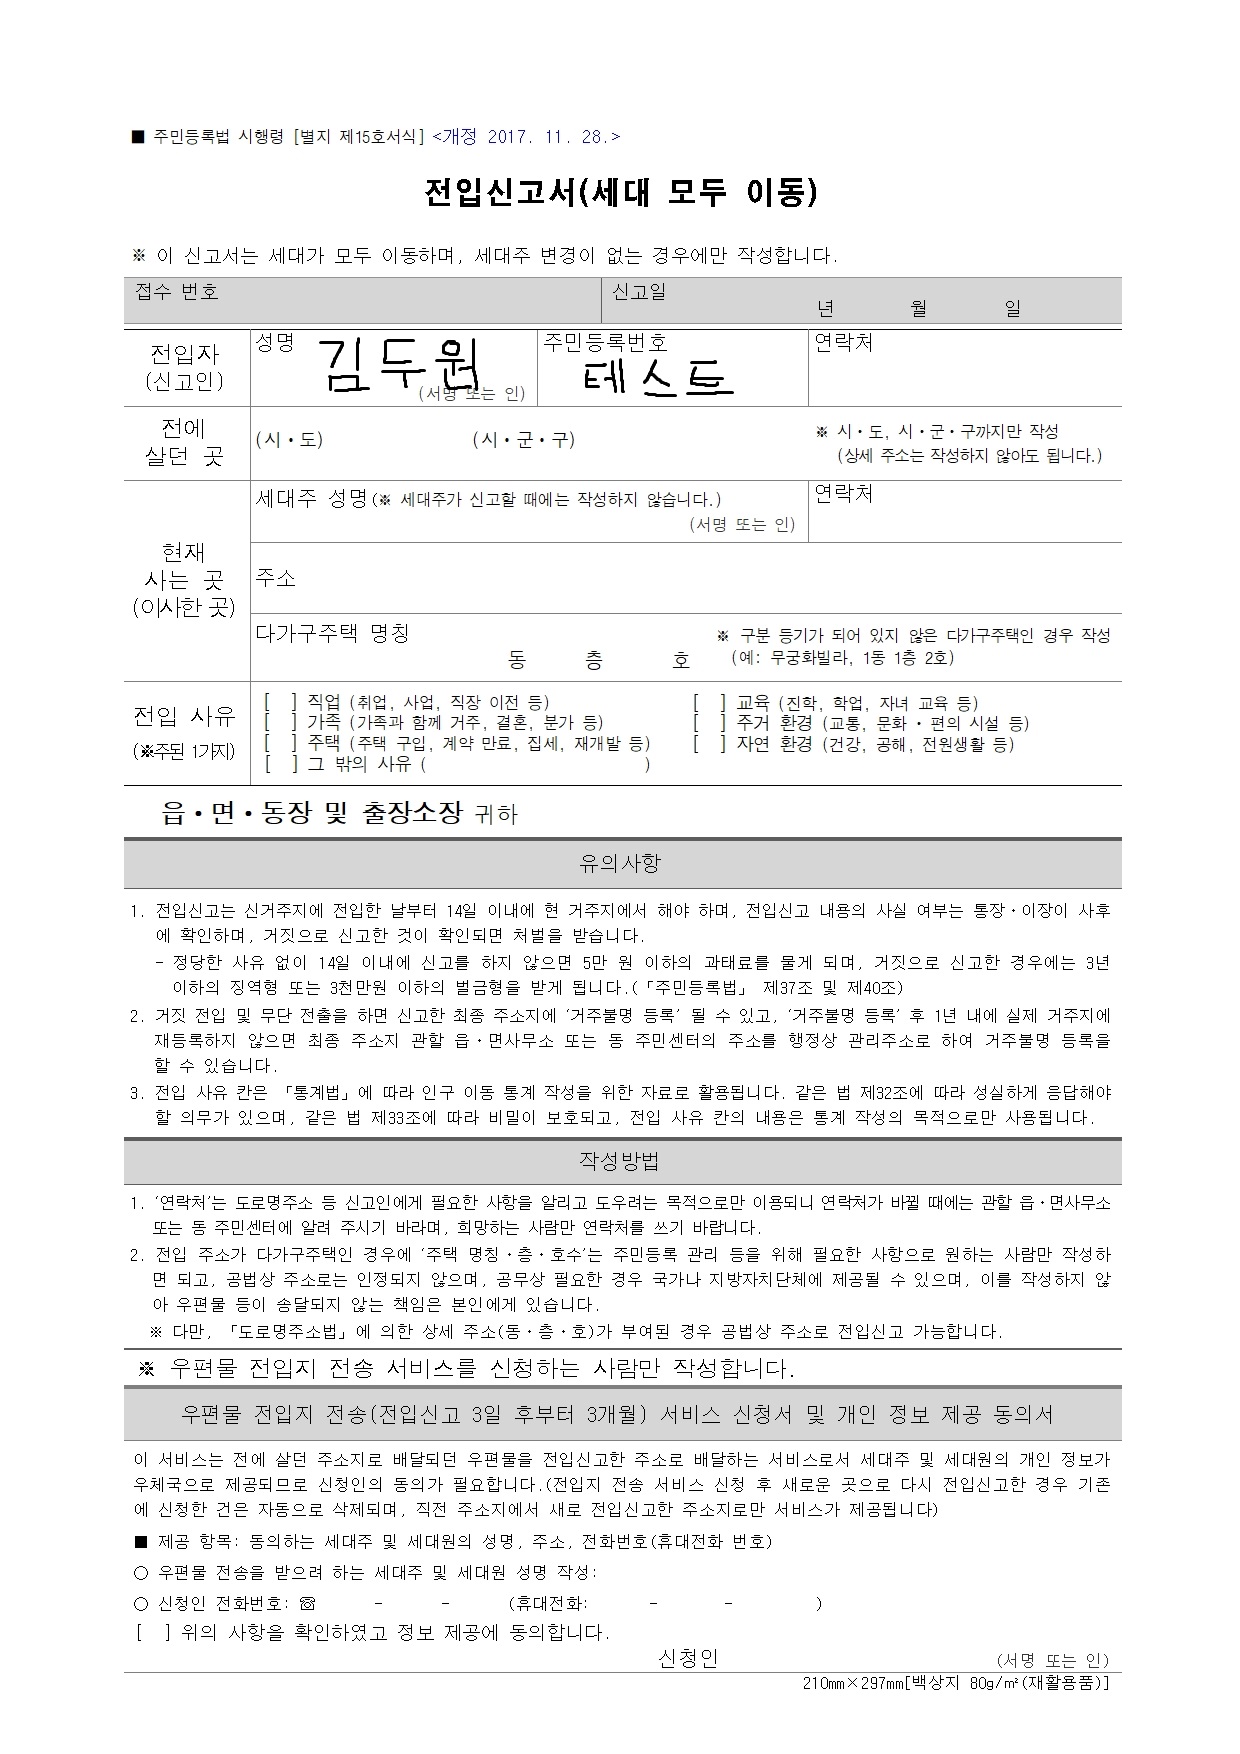 ■ 주민등록법 시행령 [별지 제15호서식] <개정 2017. 11. 28.>
전입신고서(세대 모두 이동)
※ 이 신고서는 세대가 모두 이동하며, 세대주 변경이 없는 경우에만 작성합니다.
접수 번호
신고일
년 월 일
전입자
(신고인)
성명 김두원
(서명 또는 인)
주민등록번호
테스트
연락처
전에
살던 곳
(시·도) (시·군·구)
※ 시·도, 시·군·구까지만 작성
(상세 주소는 작성하지 않아도 됩니다.)
현재
사는 곳
(이사한 곳)
세대주 성명(※ 세대주가 신고할 때에는 작성하지 않습니다.)
(서명 또는 인)
연락처
주소
다가구주택 명칭
동 층 호
※ 구분 등기가 되어 있지 않은 다가구주택인 경우 작성
(예: 무궁화빌라, 1동 1층 2호)
전입 사유
(※주된 1가지)
[ ] 직업 (취업, 사업, 직장 이전 등) [ ] 교육 (진학, 학업, 자녀 교육 등)
[ ] 가족 (가족과 함께 거주, 결혼, 분가 등) [ ] 주거 환경 (교통, 문화·편의 시설 등)
[ ] 주택 (주택 구입, 계약 만료, 집세, 재개발 등) [ ] 자연 환경 (건강, 공해, 전원생활 등)
[ ] 그 밖의 사유 ( )
읍·면·동장 및 출장소장 귀하
유의사항
1. 전입신고는 신거주지에 전입한 날부터 14일 이내에 현 거주지에서 해야 하며, 전입신고 내용의 사실 여부는 통장·이장이 사후
에 확인하며, 거짓으로 신고한 것이 확인되면 처벌을 받습니다.
- 정당한 사유 없이 14일 이내에 신고를 하지 않으면 5만 원 이하의 과태료를 물게 되며, 거짓으로 신고한 경우에는 3년
이하의 징역형 또는 3천만원 이하의 벌금형을 받게 됩니다.(「주민등록법」 제37조 및 제40조)
2. 거짓 전입 및 무단 전출을 하면 신고한 최종 주소지에 ‘거주불명 등록’ 될 수 있고, ‘거주불명 등록’ 후 1년 내에 실제 거주지에
재등록하지 않으면 최종 주소지 관할 읍·면사무소 또는 동 주민센터의 주소를 행정상 관리주소로 하여 거주불명 등록을
할 수 있습니다.
3. 전입 사유 칸은 「통계법」에 따라 인구 이동 통계 작성을 위한 자료로 활용됩니다. 같은 법 제32조에 따라 성실하게 응답해야
할 의무가 있으며, 같은 법 제33조에 따라 비밀이 보호되고, 전입 사유 칸의 내용은 통계 작성의 목적으로만 사용됩니다.
작성방법
1. ‘연락처’는 도로명주소 등 신고인에게 필요한 사항을 알리고 도우려는 목적으로만 이용되니 연락처가 바뀔 때에는 관할 읍·면사무소
또는 동 주민센터에 알려 주시기 바라며, 희망하는 사람만 연락처를 쓰기 바랍니다.
2. 전입 주소가 다가구주택인 경우에 ‘주택 명칭·층·호수’는 주민등록 관리 등을 위해 필요한 사항으로 원하는 사람만 작성하
면 되고, 공법상 주소로는 인정되지 않으며, 공무상 필요한 경우 국가나 지방자치단체에 제공될 수 있으며, 이를 작성하지 않
아 우편물 등이 송달되지 않는 책임은 본인에게 있습니다.
※ 다만, 「도로명주소법」에 의한 상세 주소(동·층·호)가 부여된 경우 공법상 주소로 전입신고 가능합니다.
※ 우편물 전입지 전송 서비스를 신청하는 사람만 작성합니다.
우편물 전입지 전송(전입신고 3일 후부터 3개월) 서비스 신청서 및 개인 정보 제공 동의서
이 서비스는 전에 살던 주소지로 배달되던 우편물을 전입신고한 주소로 배달하는 서비스로서 세대주 및 세대원의 개인 정보가
우체국으로 제공되므로 신청인의 동의가 필요합니다.(전입지 전송 서비스 신청 후 새로운 곳으로 다시 전입신고한 경우 기존
에 신청한 건은 자동으로 삭제되며, 직전 주소지에서 새로 전입신고한 주소지로만 서비스가 제공됩니다)
■ 제공 항목: 동의하는 세대주 및 세대원의 성명, 주소, 전화번호(휴대전화 번호)
○ 우편물 전송을 받으려 하는 세대주 및 세대원 성명 작성:
○ 신청인 전화번호: ☏ - - (휴대전화: - - )
[ ] 위의 사항을 확인하였고 정보 제공에 동의합니다.
신청인 (서명 또는 인)
210㎜×297㎜[백상지 80g/㎡(재활용품)]